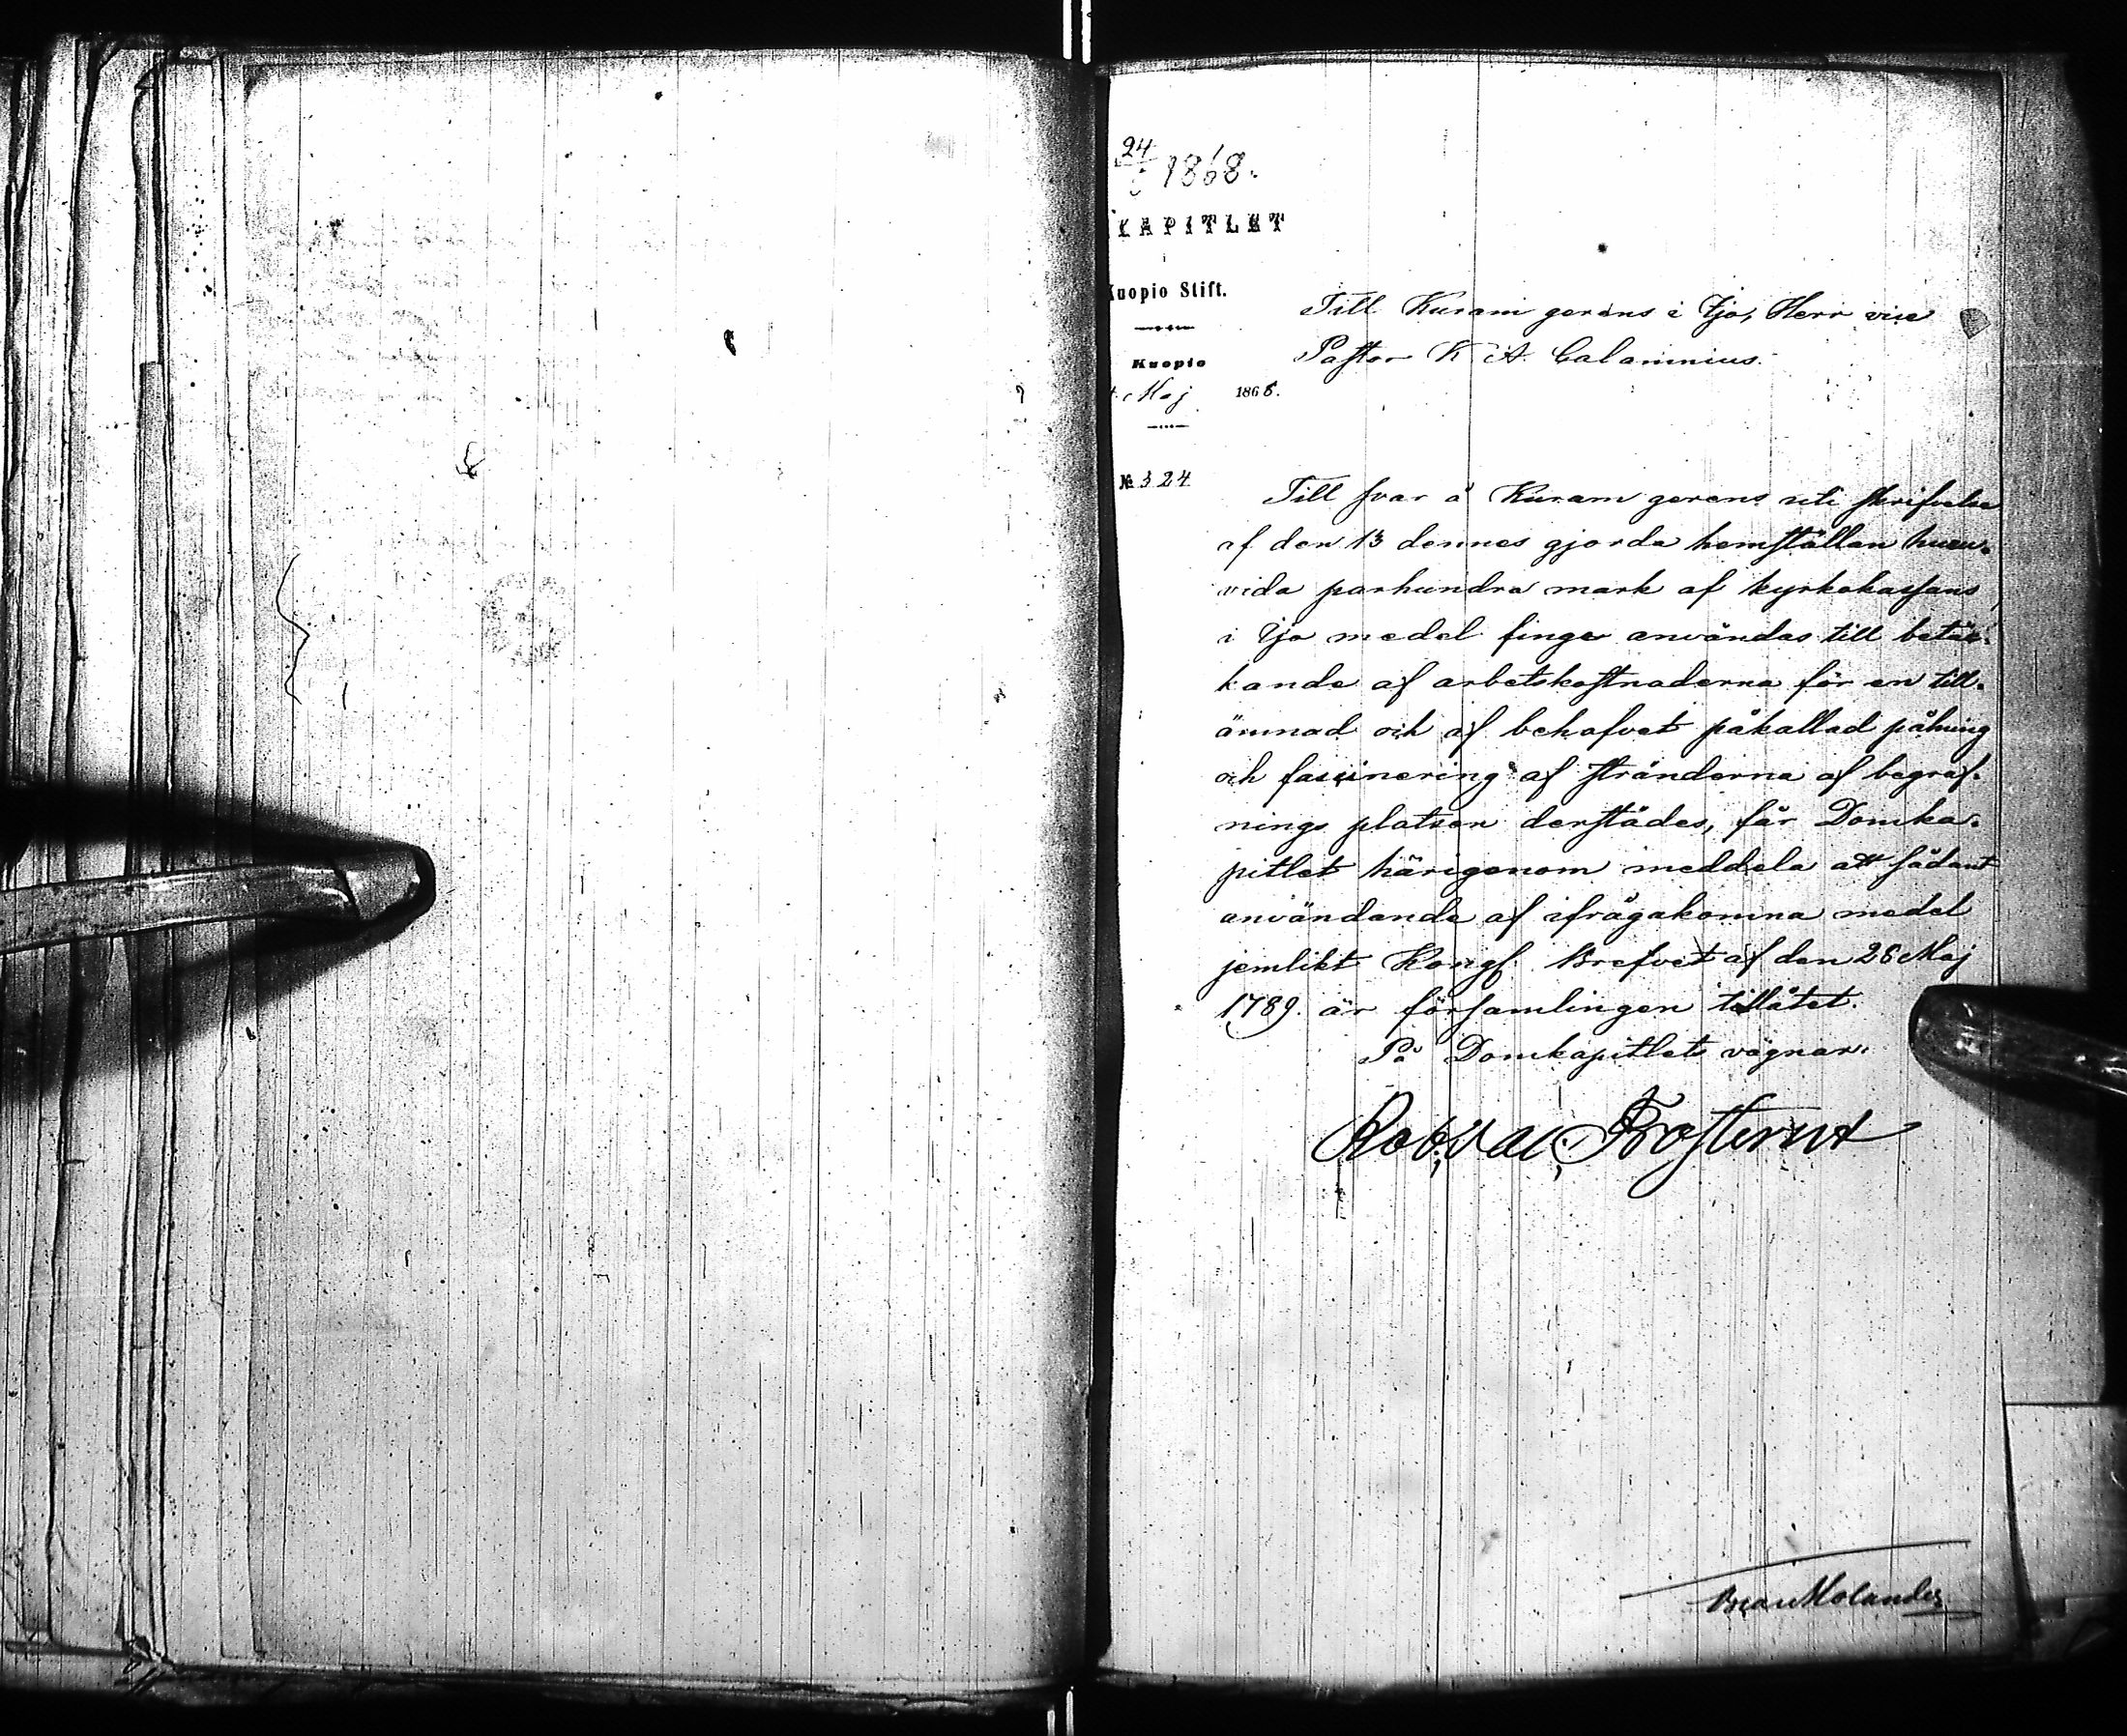 24
1868.
KAPITLET
Kuopio Stift.
Kuopio
Maj 1868.
№ 324
Till Curam gerens i Ijo, Herr vice
Pastor K A Calamnius.
Till svar å Curam gerens uti skrifvelse
af den 13 dennes gjorda hemställan huru-
vida parhundra mark af kyrkokassans
i Ijo medel finge användas till betäc-
kande af arbetskostnaderna för en till-
ämnad och af behofvet påkallad pålning
och fascinering af stränderna af begraf-
nings platsen derstädes, får Domka-
pitlet härigenom meddela att sådant
användande af ifrågakomna medel
jemlikt Kongl. Brefvet af den 26 Maj
1789. är församlingen tillåtet.
På Domkapitlets vägnar.
Rob. Val. Frosterus
Oscar Molander